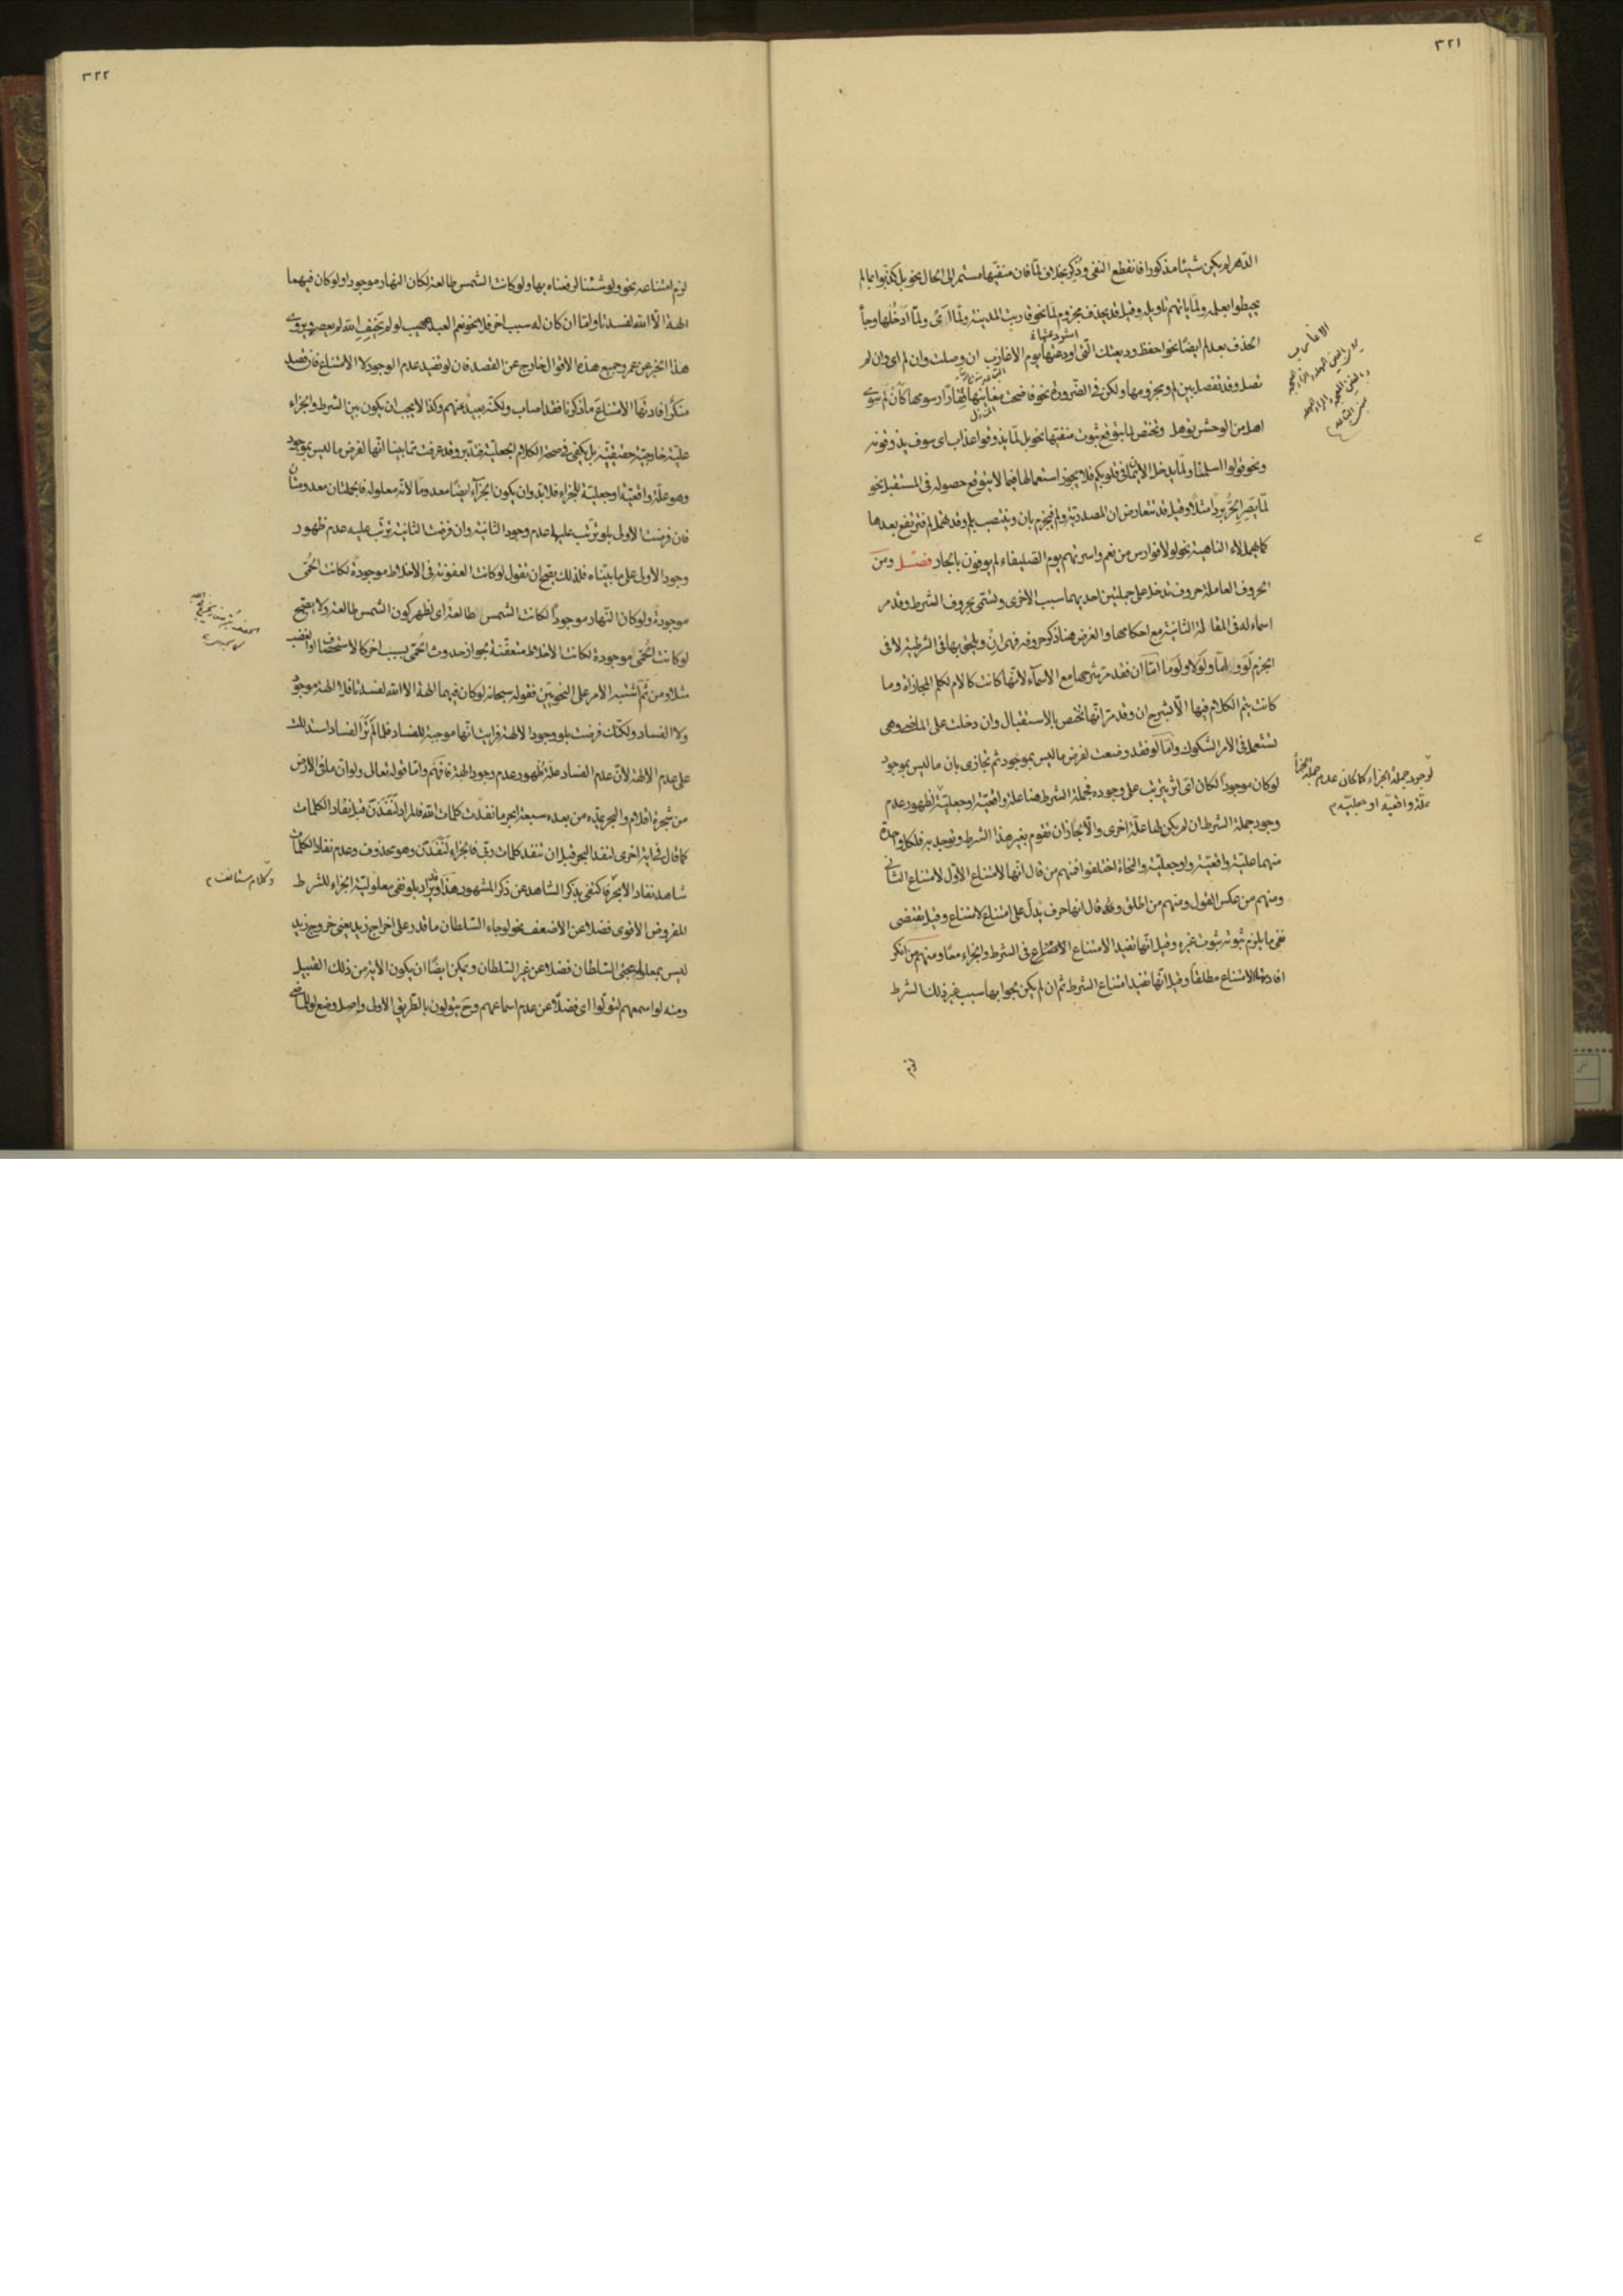 ٣٢١
الدهر لم يكن شيئا مذكورا فانقطع النفى وذكر بخلاف لمّا فان منفيّها مستمر الى الحال نحو بل كذبوا بما لم
يحيطوا بعلمه ولمّا ياتهم تاويله وقيل قد يحذف مجزوم لمّا نحو قاربت المدينة ولمّا اى ولمّا ادخلها وجاء
الحذف بعد لم ايضا نحو احفظ وديعتك التى اودعتها يوم الاعازب ان وصلت وان لم اى وان لم
تصل وقد تفصل بين لم ومجزومها ولكن فى الضّرورة نحو فاضحت مغانيها قفارا رسومها كأن لم سوى
اهل من الوحش تؤهل وتختص لمّا بتوقع ثبوت منفيّها نحو بل لمّا يذوقوا عذاب اى سوف يذوقونه
ونحو قولوا اسلمنا ولمّا يدخل الايمان فى قلوبكم فلا يجوز استعمالها فيما لا يتوقع حصوله فى المستقبل نحو
لمّا يصر الحرّ بردا مثلا وقيل قد تتعارض ان المصدريّة ولم فيجزم بان وينتصب بلم وقد تهمل لم فترتفع بعدها
كما يهمل لاء الناهية نحو لولا فوارس من نعم واسرتهم يوم الصليفاء لم يوفون بالجار فصل ومن
الحروف العاملة حروف تدخل على جملتين احديهما سبب الاخرى وتسمّى بحروف الشرط وقد مر
اسماء له فى المقالة الثانية مع احكامها والغرض هنا ذكر حروفه فهى ان ويلحق بها فى الشرطيّة لا فى
الجزم لو و امّا ولولا ولوما امّا ان فقد مرّ شرحها مع الاسماء لانّها كانت كالام لكلم المجازاة وما
كانت يتم الكلام فيها الّا بشرح ان وقد مرّ انّها تختص بالاستقبال وان دخلت على الماضى وهى
تستعمل فى الامر المشكوك وامّا لو فقد وضعت لفرض ما ليس بموجود ثم تجازى بان ما ليس بموجود
لو كان موجودا لكان اى اثر يترتب على وجوده فجملة الشرط هنا علة واقعيّة او جعليّة لظهور عدم
وجود جملة الشرط ان لم يكن لها علّة اخرى والّا لجاز ان تقوم بغير هذا الشرط وتوجد به فلكل واحدة
منهما عليّة واقعيّة او جعليّة والنحاة اختلفوا فمنهم من قال انّها لامتناع الاوّل لامتناع الثانى
ومنهم من عكس القول ومنهم من اطلق وقال انها حرف يدل على امتناع لامتناع وقيل تقتضى
نفى ما يلزم ثبوته ثبوت غيره وقيل انّها تفيد الامتناع فى الشرط والجزاء معا ومنهم من انكر
افادتها الامتناع مطلقا وقيل انّها تفيد امتناع الشرط ثم ان لم يكن لجوابها سبب غير ذلك الشرط
لزم
لوجود جملة الجزاء كما كان عدم جملة الجزاء
علّة واقعيّة او جعليّة
٣٢٢
لزم امتناعه نحو ولو شئنا لرفعناه بها ولو كانت الشمس طالعة لكان النهار موجودا ولو كان فيهما
الهة الّا الله لفسدتا وامّا ان كان له سبب اخر فلا نحو نعم العبد صهيب لو لم يخف الله لم يعصه ويروى
هذا الخبر عن عمر وجميع هذه الاقوال خارج عن القصد فان لو تفيد عدم الوجود لا الامتناع فان قصد
منكر افادتها الامتناع ما ذكرنا فقد اصاب ولكنّه بعيد عنهم وكذا لا يجب ان يكون بين الشرط والجزاء
عليّة خارجيّة حقيقيّة بل يكفى فى صحة الكلام الجعليّة فتدبّر وقد عرفت ممّا بينا انّها لفرض ما ليس بموجود
وهو علّة واقعيّة او جعليّة للجزاء فلا بد وان يكون الجزاء ايضا معدوما لانّه معلوله فالجملتان معدومتان
فان فرضت الاولى بلو ترتّب عليها عدم وجود الثانية وان فرضت الثانية ترتّب عليه عدم ظهور
وجود الاولى على ما بيّناه فلذلك يصح ان تقول لو كانت العفونة فى الاخلاط موجودة لكانت الحمّى
موجودة ولو كان النّهار موجودا لكانت الشمس طالعة اى لظهر كون الشمس طالعة ولا يصح
لو كانت الحمّى موجودة لكانت الاخلاط متعفّنة لجواز حدوث الحمّى بسبب اخر كالاستحصاف او الغضب
مثلا ومن ثمّ اشتبه الامر على النحويّين فقوله سبحانه لو كان فيهما الهة الا الله لفسدتا فلا الهة موجود
ولا الفساد ولكنّك فرضت بلو وجود الالهة فرايت انّها موجبة للفساد فلمّا لم تر الفساد استدللت
على عدم الالهة لانّ عدم الفساد علّة لظهور عدم وجود الهة فافهم وامّا قوله تعالى ولو ان ما فى الارض
من شجرة اقلام والبحر يمدّه من بعده سبعة ابحر ما نفدت كلمات الله فالمراد لنفدن قبل نفاد الكلمات
كما قال فى اية اخرى لنفد البحر قبل ان تنفد كلمات ربى فالجزاء لنفدن وهو محذوف وعدم نفاد الكلمات
شاهد نفاد الابحر فاكتفى بذكر الشاهد عن ذكر المشهود هذا وقد يراد بلو نفى معلوليّة الجزاء للشرط
المفروض الاقوى فضلا عن الاضعف نحو لو جاء السّلطان ما قدر على اخراج زيد يعنى خروج زيد
ليس بمعلول مجئ السّلطان فضلا عن غير السّلطان ويمكن ايضا ان يكون الاية من ذلك القبيل
ومنه لو اسمعهم لتولّوا اى فضلا عن عدم اسماعهم وح يتولون بالطّريق الاولى واصل وضع لو للماضى
وكلام مستانف